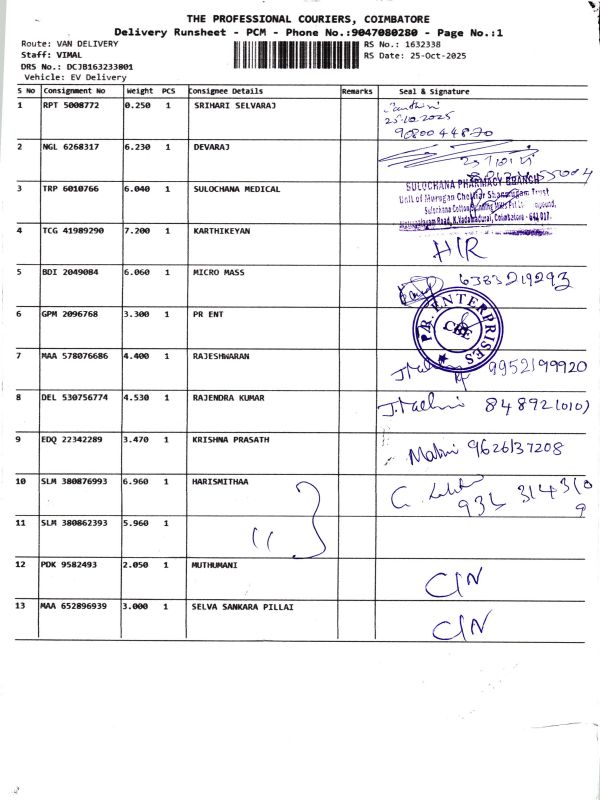 THE PROFESSIONAL COURIERS, COIMBATORE
Delivery Runsheet - PCM - Phone No.:9047080280 - Page No.:1
Route: VAN DELIVERY
RS No.: 1632338
Staff: VIMAL
RS Date: 25-Oct-2025
DRS No.: DCJB163233801
Vehicle: EV Delivery
S No Consignment No Weight PCS Consignee Details Remarks Seal & Signature
1 RPT 5008772 0.250 1 SRIHARI SELVARAJ
25.10.2025
9080044870
2 NGL 6268317 6.230 1 DEVARAJ
3 TRP 6010766 6.040 1 SULOCHANA MEDICAL
SULOCHANA PHARMACY BRANCH
Unit of Murugan Chettiar Shanmugam Trust
Sulochana Cotton Spinning Mills Pvt Ltd Compound,
Road, K.Vadamadurai, Coimbatore - 641 017.
4 TCG 41989290 7.200 1 KARTHIKEYAN H/R
5 BDI 2049084 6.060 1 MICRO MASS 6383219293
6 GPM 2096768 3.300 1 PR ENT
P.R. ENTERPRISES
CBE
7 MAA 578076686 4.400 1 RAJESHWARAN 9952199920
8 DEL 530756774 4.530 1 RAJENDRA KUMAR 8489210101
9 EDQ 22342289 3.470 1 KRISHNA PRASATH 9626137208
10 SLM 380876993 6.960 1 HARISMITHAA
11 SLM 380862393 5.960 1 "
12 PDK 9582493 2.050 1 MUTHUMANI C/N
13 MAA 652896939 3.000 1 SELVA SANKARA PILLAI C/N